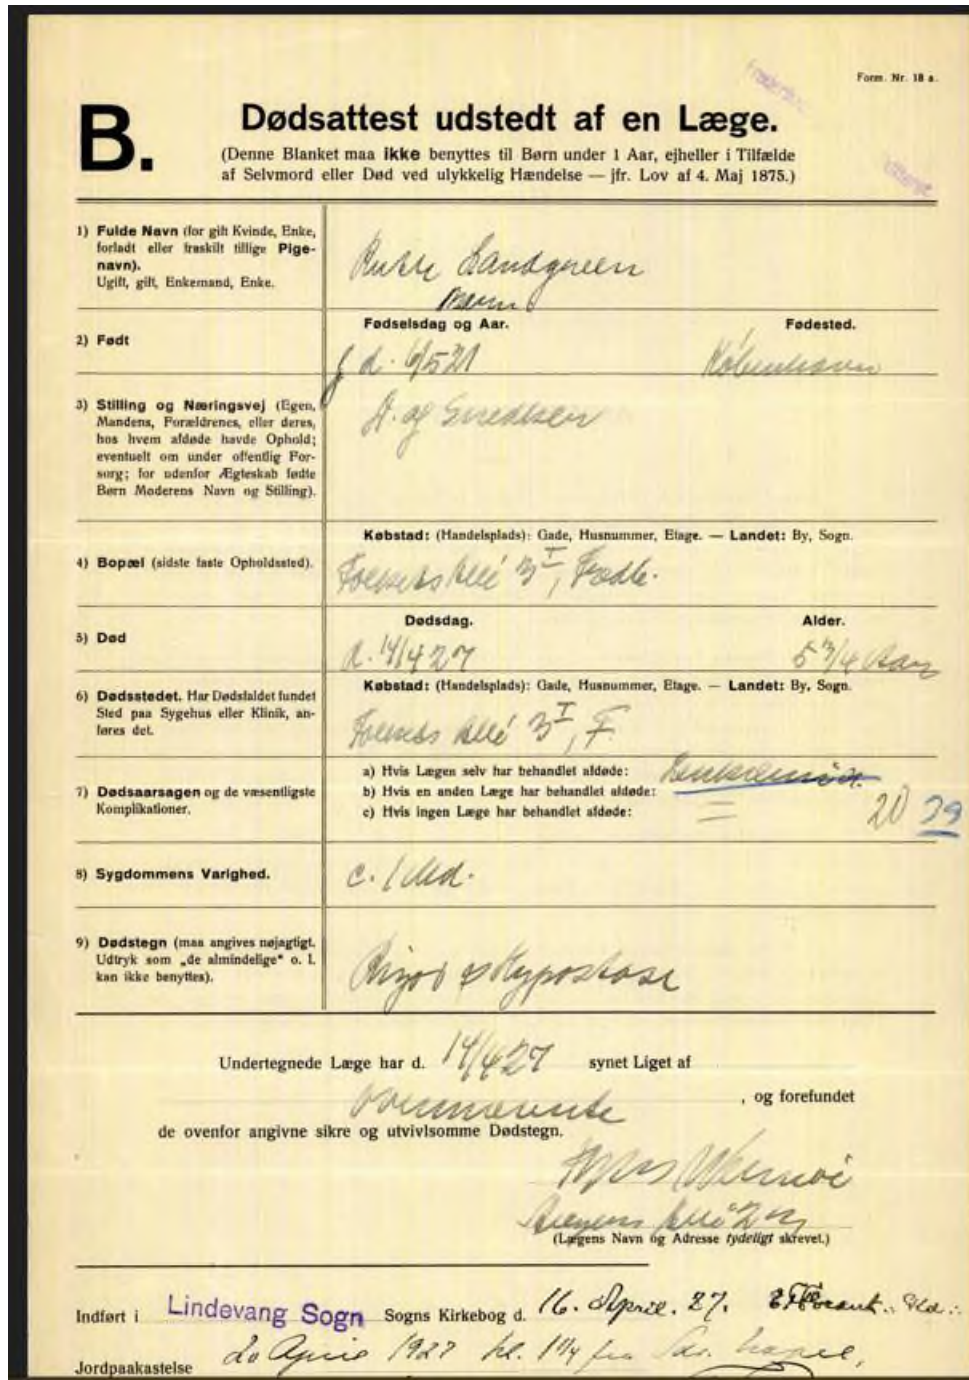 Form. Nr. 18 a.
B.
Dødsattest udstedt af en Læge.
(Denne Blanket maa ikke benyttes til Børn under 1 Aar, ejheller i Tilfælde
af Selvmord eller Død ved ulykkelig Hændelse — jfr. Lov af 4. Maj 1875.)
1) Fulde Navn (for gift Kvinde, Enke,
forladt eller fraskilt tillige Pige-
navn).
Ugift, gift, Enkemand, Enke.
Landgreen
Barn
2) Født
Fødselsdag og Aar.
Fødested.
d. 6/5 21
København
3) Stilling og Næringsvej (Egen,
Mandens, Forældrenes, eller deres,
hos hvem afdøde havde Ophold;
eventuelt om under offentlig For-
sorg; for udenfor Ægteskab fødte
Børn Moderens Navn og Stilling).
4) Bopæl (sidste faste Opholdssted).
Købstad: (Handelsplads): Gade, Husnummer, Etage. — Landet: By, Sogn.
Allé 3 I, Fredb.
5) Død
Dødsdag.
Alder.
d. 14/4 27
5 3/4 Aar
6) Dødsstedet. Har Dødsfaldet fundet
Sted paa Sygehus eller Klinik, an-
føres det.
Købstad: (Handelsplads): Gade, Husnummer, Etage. — Landet: By, Sogn.
Allé 3 I, F.
7) Dødsaarsagen og de væsentligste
Komplikationer.
a) Hvis Lægen selv har behandlet afdøde:
b) Hvis en anden Læge har behandlet afdøde:
c) Hvis ingen Læge har behandlet afdøde:
Leukæmi
20 39
8) Sygdommens Varighed.
c. 1 Md.
9) Dødstegn (maa angives nøjagtigt.
Udtryk som „de almindelige“ o. l.
kan ikke benyttes).
Rigor & Hypostase
Undertegnede Læge har d. 14/4 27 synet Liget af
Ovennævnte, og forefundet
de ovenfor angivne sikre og utvivlsomme Dødstegn.
Allé 2
(Lægens Navn og Adresse tydeligt skrevet.)
Indført i Lindevang Sogn Sogns Kirkebog d. 16. April. 27.
Jordpaakastelse 20 April 1927 kl. 1 1/4 fra Kapel,